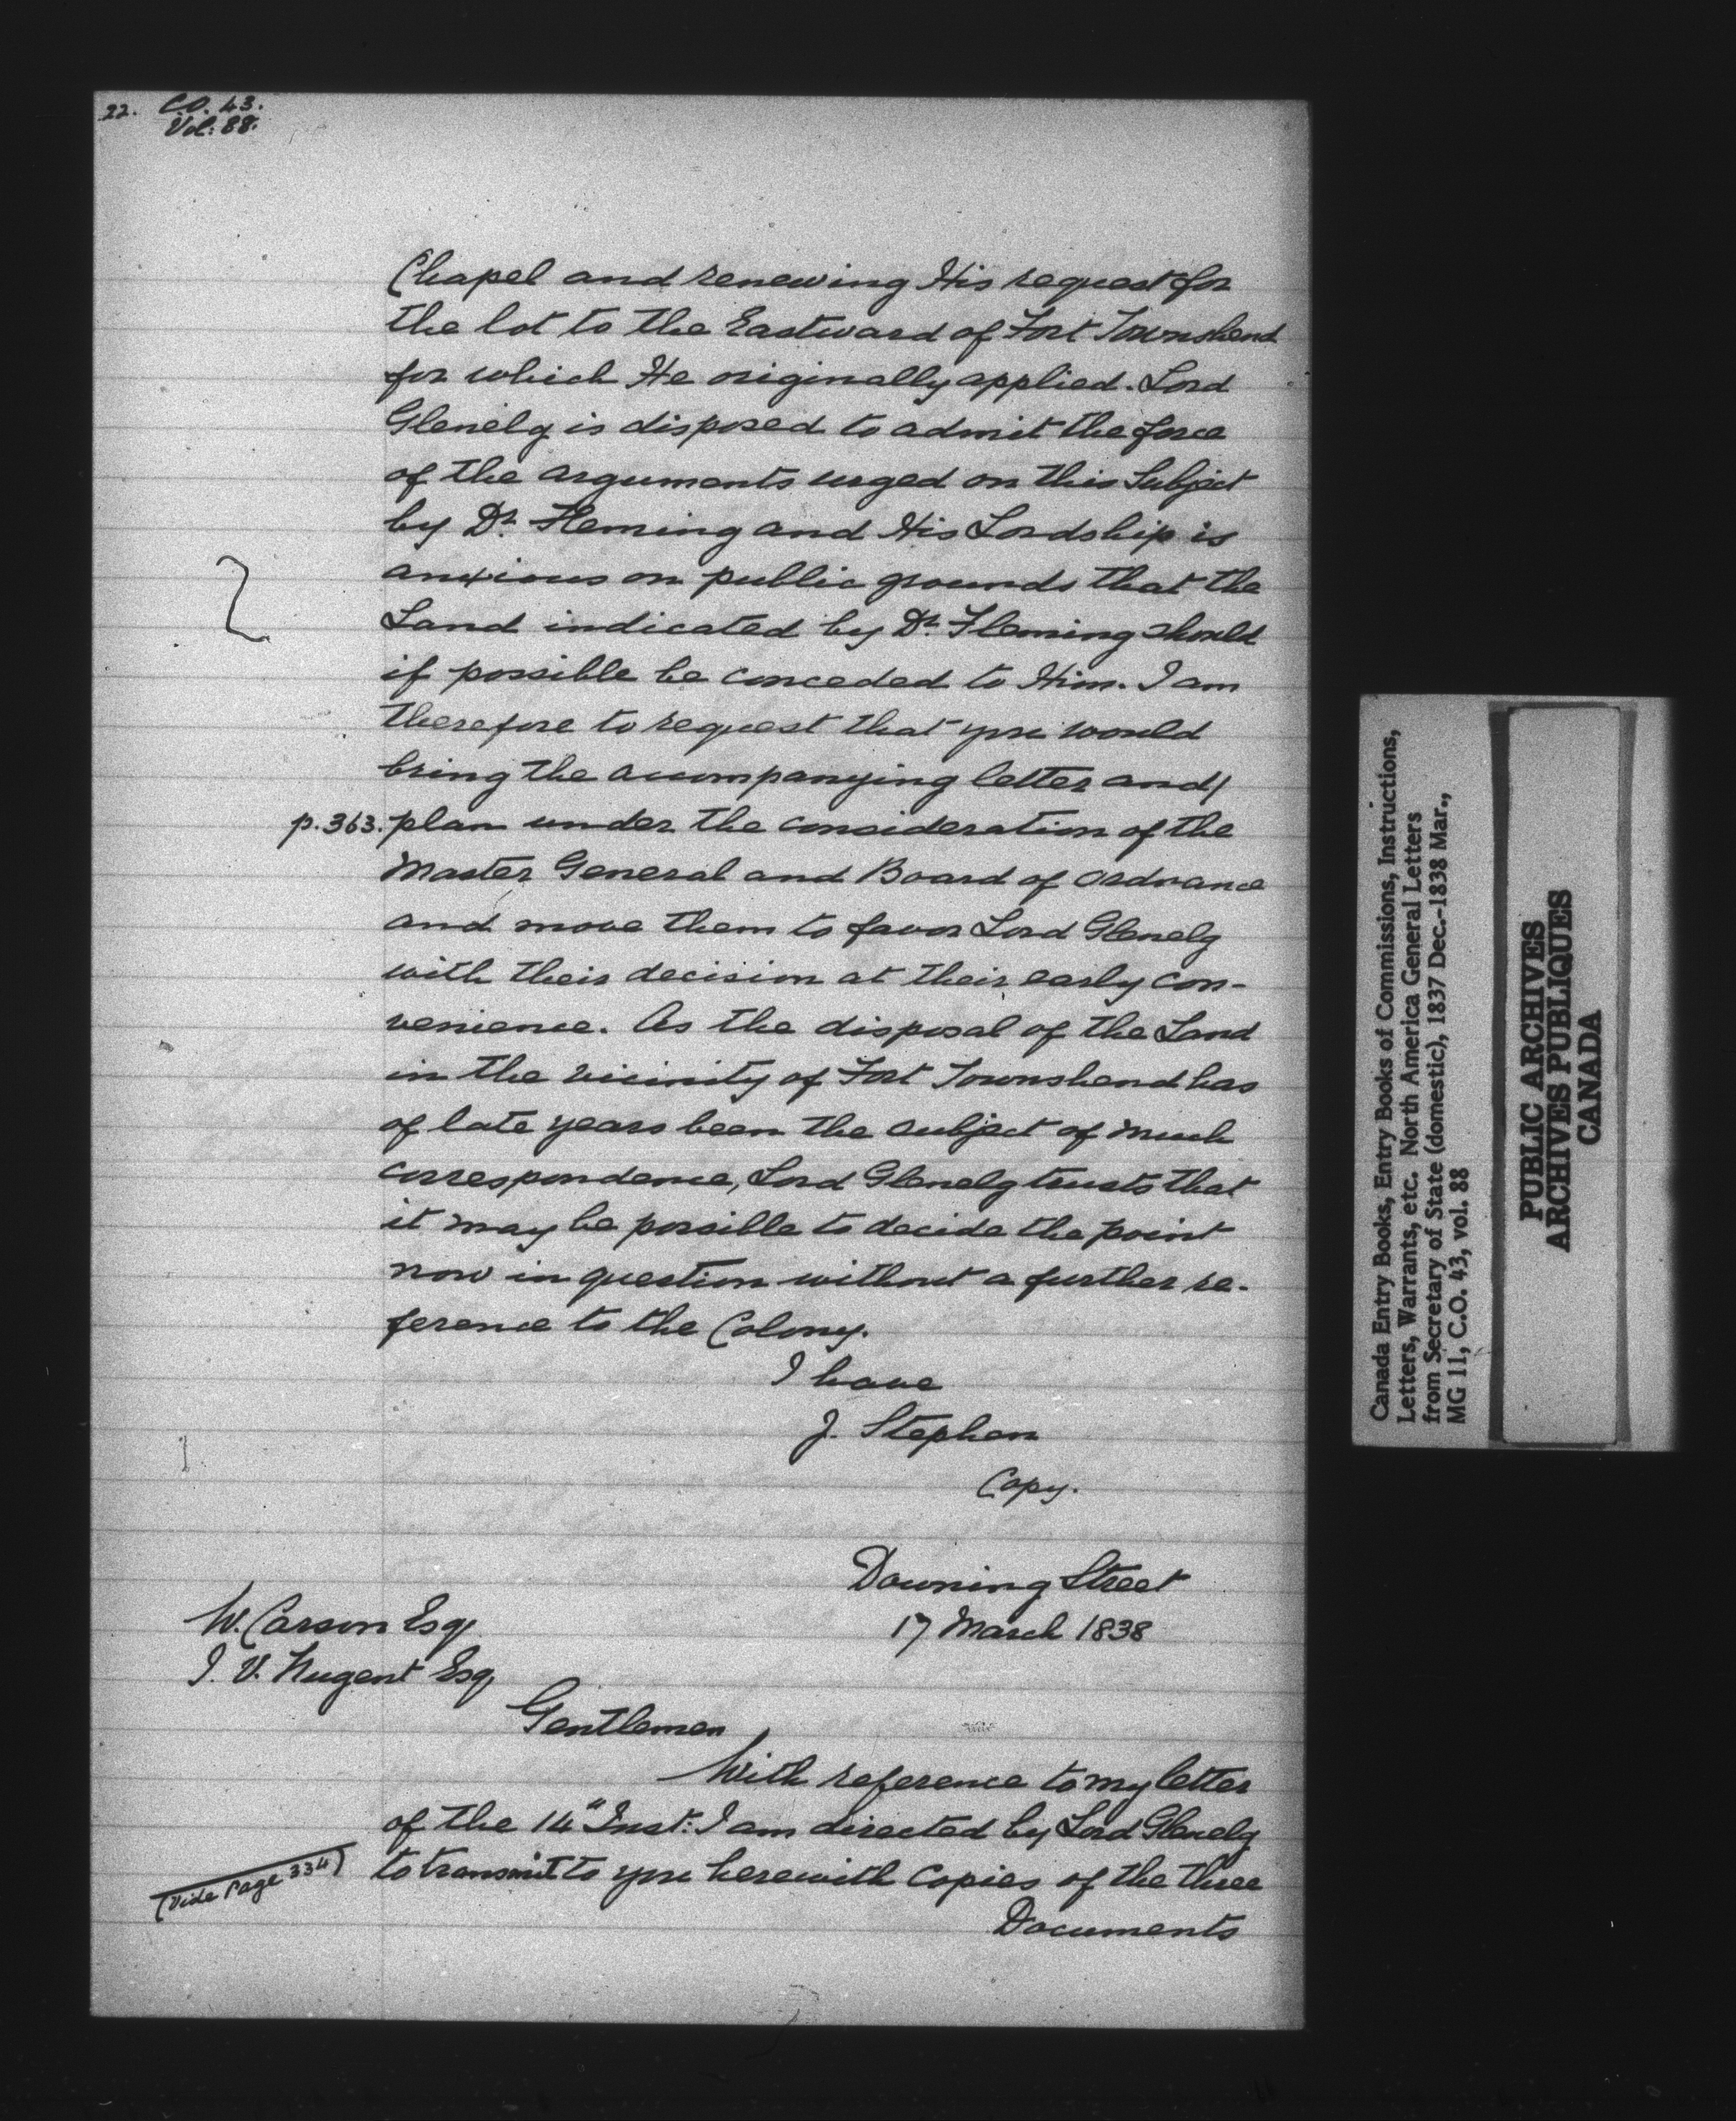 22. C.O. 43.
Vol: 88.
Chapel and renewing His request for
the lot to the Eastward of Fort Townshend
for which He originally applied. Lord
Glenelg is disposed to admit the force
of the arguments urged on this Subject
by Dr. Fleming and His Lordship is
anxious on public grounds that the
Land indicated by Dr. Fleming should
if possible be conceded to Him. I am
therefore to request that you would
bring the accompanying letter and/
p.363. plan under the consideration of the
Master General and Board of Ordnance
and move them to favor Lord Glenelg
with their decision at their early con-
venience. As the disposal of the Land
in the vicinity of Fort Townshend has
of late years been the subject of much
correspondence, Lord Glenelg trusts that
it may be possible to decide the point
now in question without a further re-
ference to the Colony.
I have
J. Stephen
Copy.
Downing Street
17 March 1838
W. Carson Esq
J. V. Nugent Esq
Gentlemen
With reference to my letter
of the 14" Inst: I am directed by Lord Glenelg
(Vide Page 334) to transmit to you herewith Copies of the three
Documents
Canada Entry Books, Entry Books of Commissions, Instructions,
Letters, Warrants, etc. North America General Letters
from Secretary of State (domestic), 1837 Dec.-1838 Mar.,
MG 11, C.O. 43, vol. 88
PUBLIC ARCHIVES
ARCHIVES PUBLIQUES
CANADA